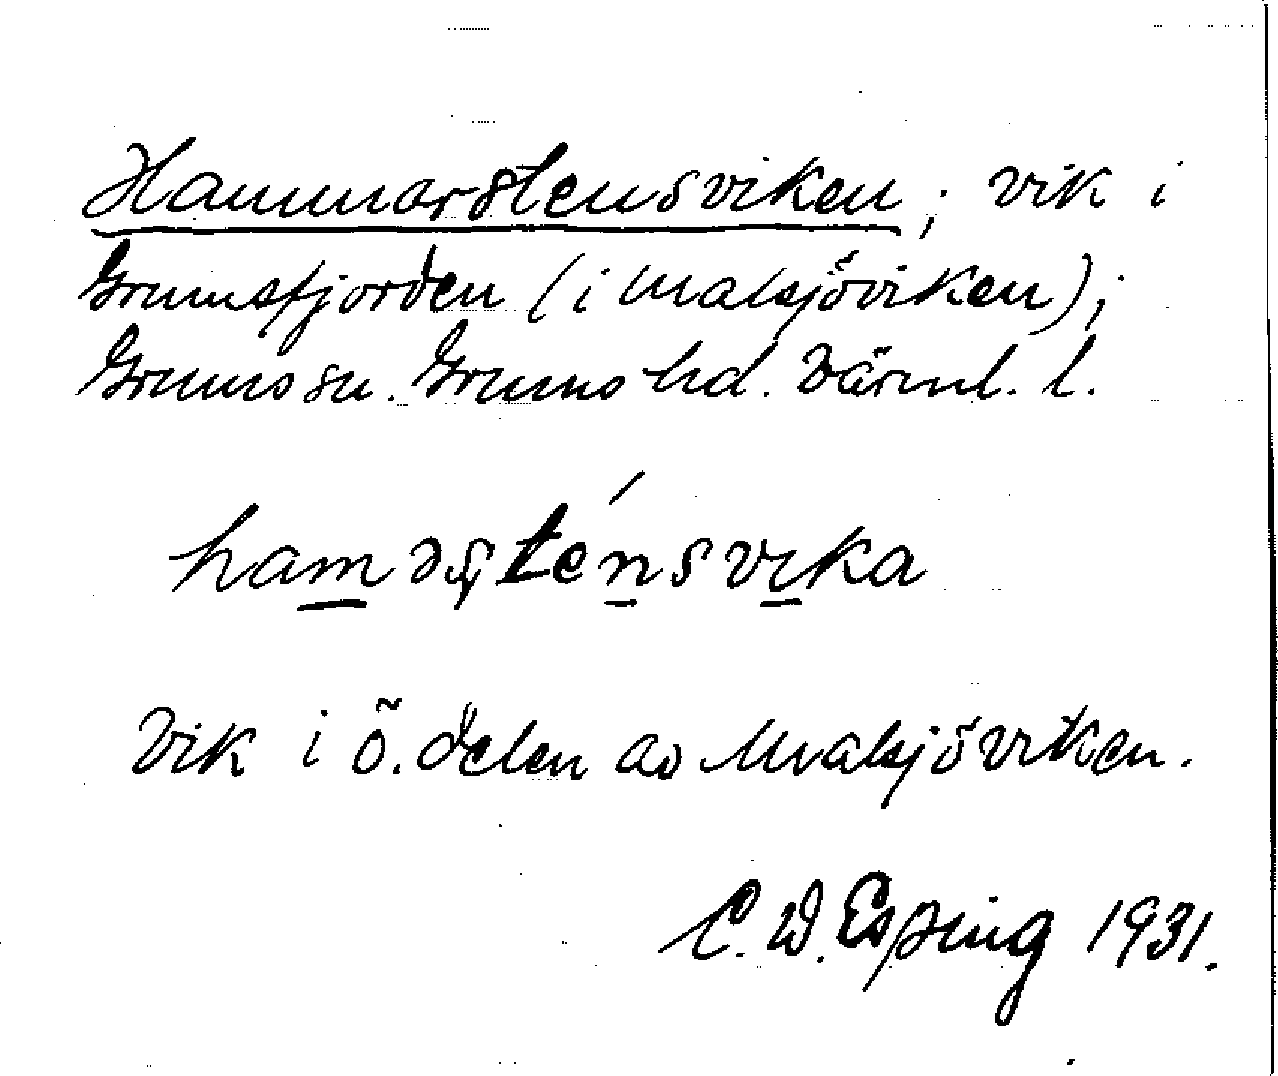 Hammarstensviken; vik i
Grumsfjorden (i Malsjöviken);
Grums sn. Grums hd. Värml. l.
haməşténsvıka
Vik i ö. delen av Malsjöviken.
C. W. Esping 1931.